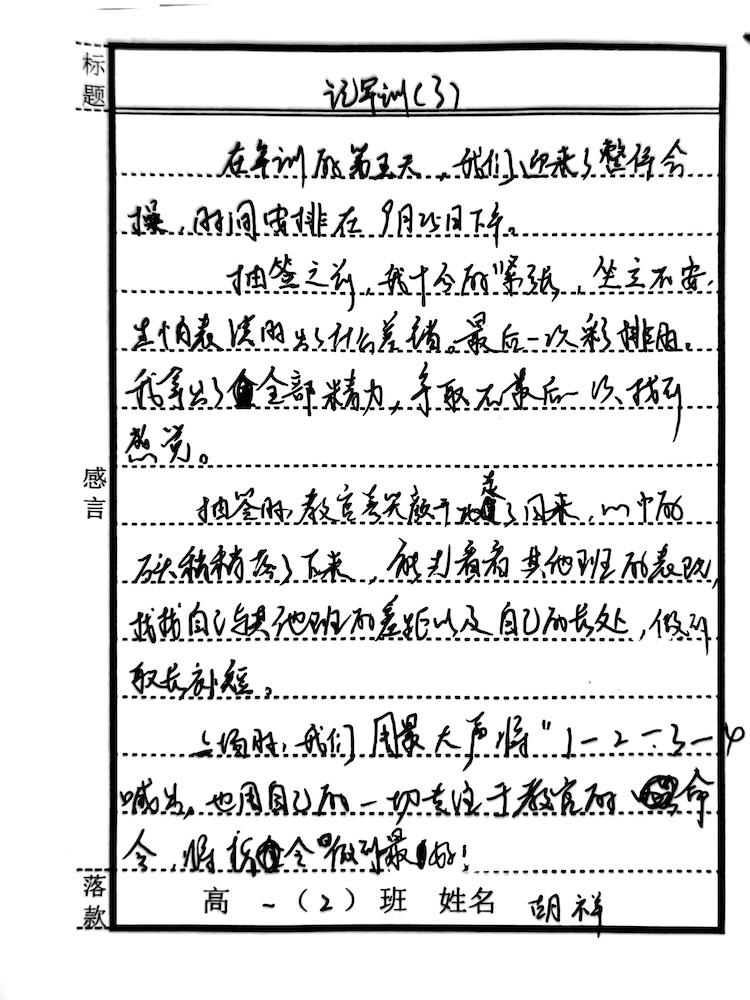 标题
记军训(3)
在军训的第五天,我们迎来了整体会
操,时间安排在9月25日下午。
抽签之前,我十分的紧张,坐立不安,
生怕表演时出了什么差错。最后一次彩排时,
我拿出了全部精力,争取在最后一次找到
感觉。
感言
抽签时,教官喜笑颜开地走了回来,心中的
石头稍稍落了下来,能先看看其他班的表现,
找找自己与其他班的差距以及自己的长处,做到
取长补短。
上场时,我们用最大声将"1—2—3—4
喊出,也用自己的一切专注于教官的命
令,将指令做到最好!
落款
高一(2)班 姓名 胡祥